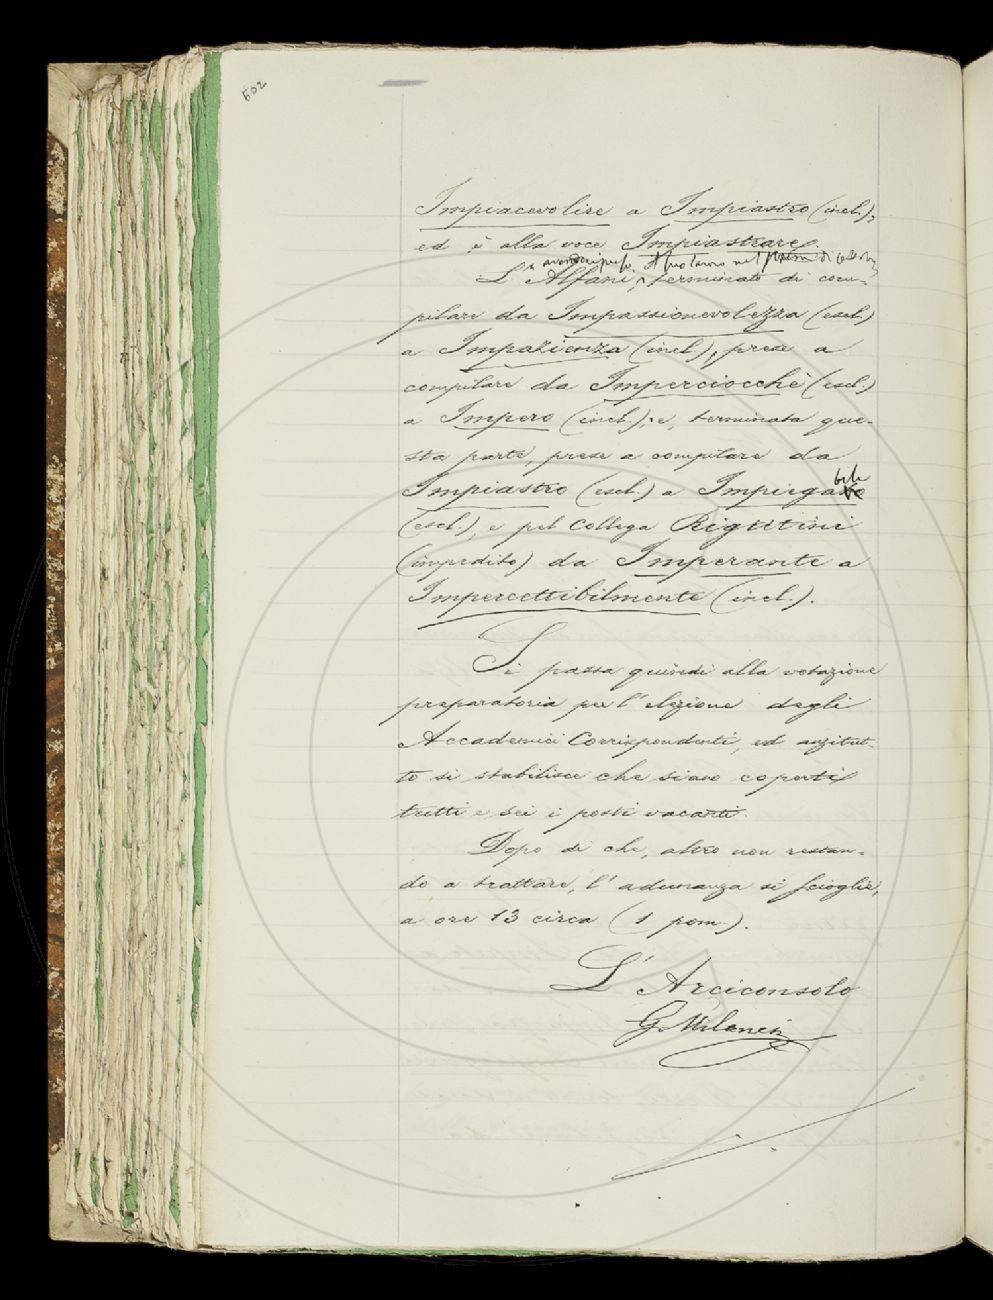 502
Impiacevolire a Impiastro (incl.),
ed è alla voce Impiastrare.
L'Alfani, terminato di com-
pilare da Impassionevolezza (escl.)
a Impazienza (incl.), prese a
compilare da Imperciocchè (escl.)
a Impero (incl.); e, terminata que-
sta parte, prese a compilare da
Impiastro (escl.) a
(escl.), e pel Collega Rigutini
(impedito) da Imperante a
Impercettibilmente (incl.).
Si passa quindi alla votazione
preparatoria per l'elezione degli
Accademici Corrispondenti, ed anzitut-
to si stabilisce che siano coperti
tutti e sei i posti vacanti.
Dopo di che, altro non restan-
do a trattare, l'adunanza si scioglie,
a ore 13 circa (1 pom.).
L'Arciconsolo
G. Milanesi